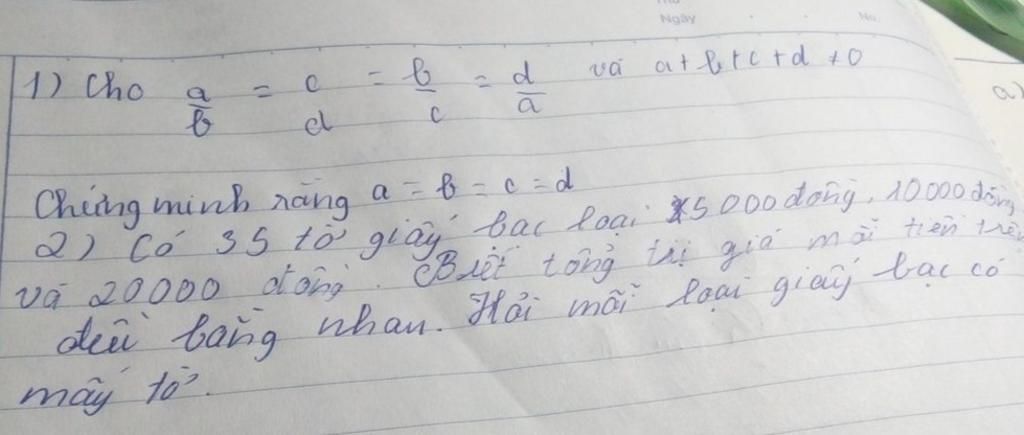 Ngày No.
1) Cho a/b = c/d = b/c = d/a và a+b+c+d ≠0
a)
Chứng minh rằng a = b = c = d
2) Có 35 tờ giấy bạc loại 5000 đồng, 10000 đồng
và 20000 đồng. Biết tổng trị giá mỗi tiền trên
đều bằng nhau. Hỏi mỗi loại giấy bạc có
mấy tờ.